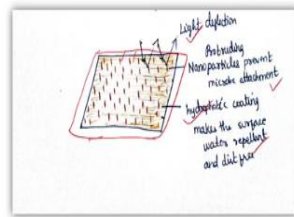 Light deflection
Protruding
Nanoparticles prevent
microbe attachment
hydrophobic coating
makes the surface
water repellent
and dirt free